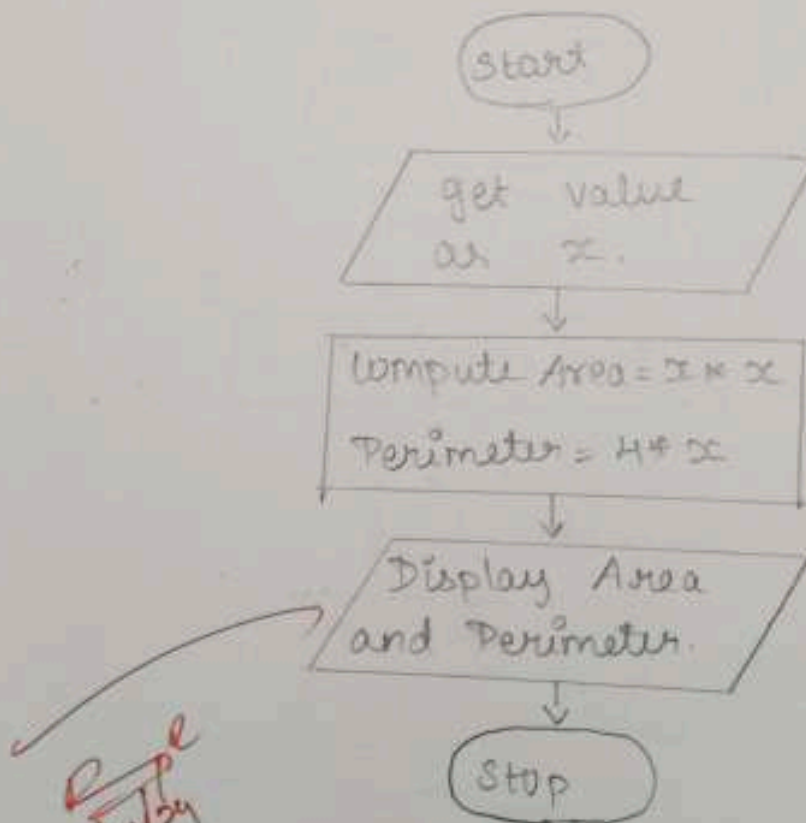 Start
get value
as x.
Compute Area = x * x
Perimeter = 4 * x
Display Area
and Perimeter.
Stop